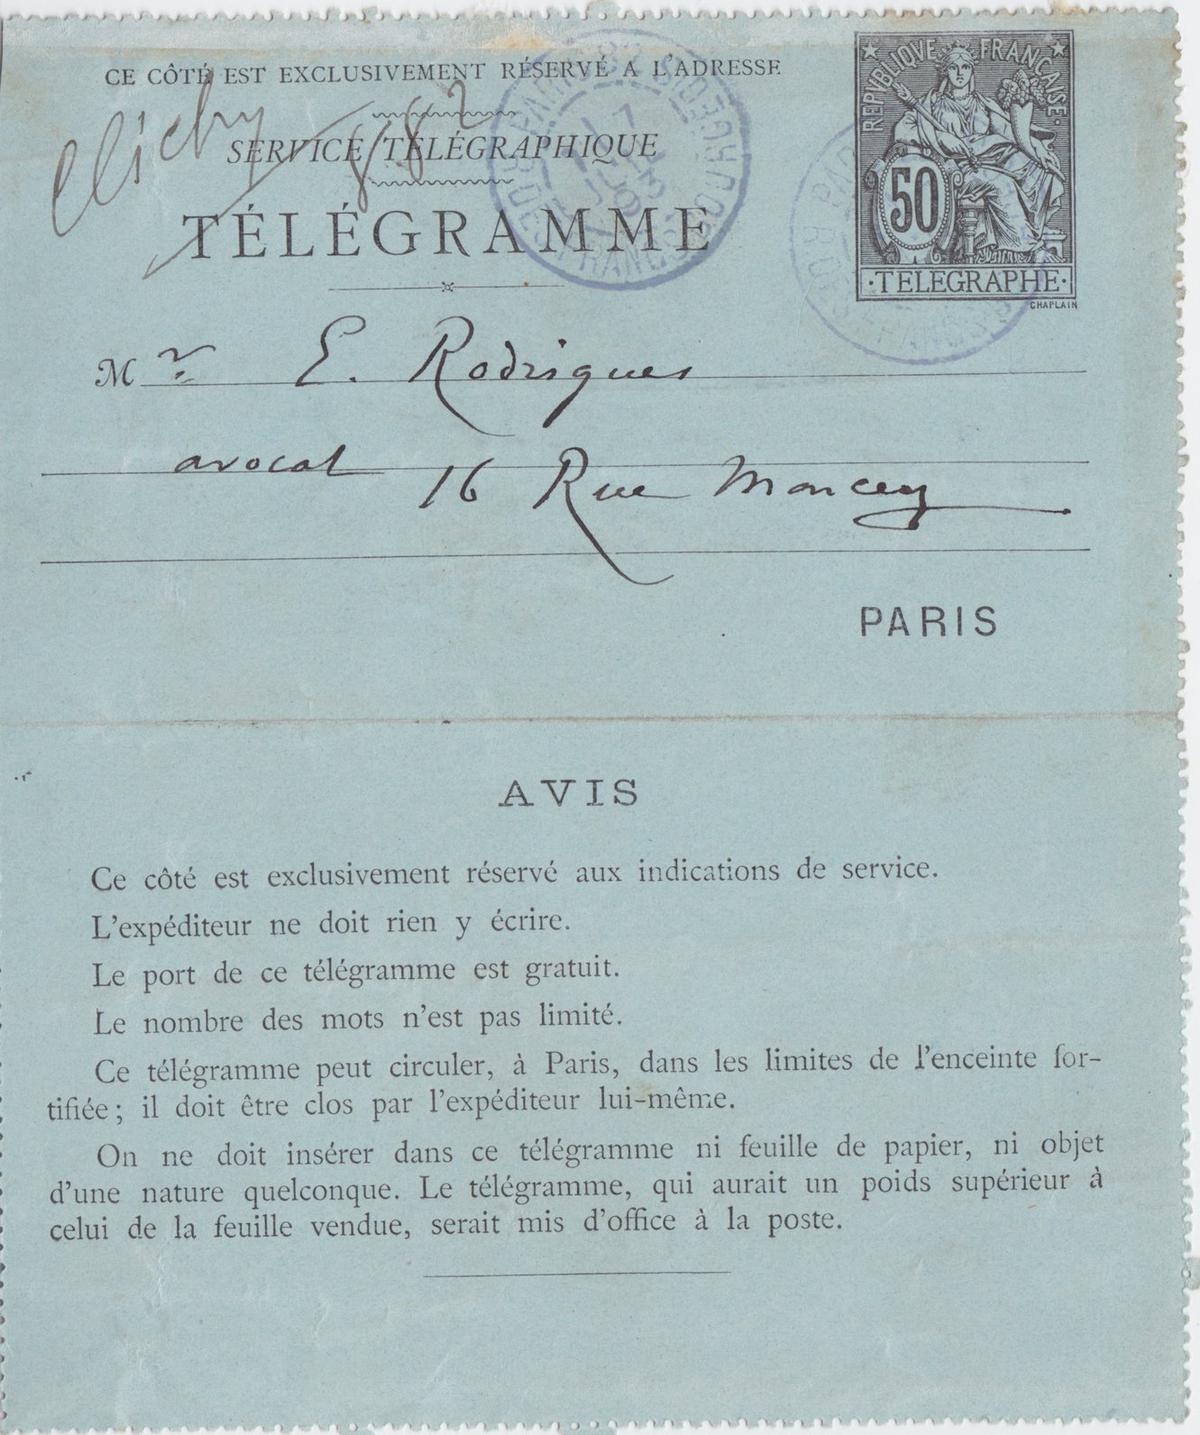 CE CÔTÉ EST EXCLUSIVEMENT RÉSERVÉ A L'ADRESSE
Clichy
SERVICE TÉLÉGRAPHIQUE
TÉLÉGRAMME
REPUBLIQUE FRANCAISE
50
·TELEGRAPHE·
CHAPLAIN
Mr E. Rodrigues
avocat 16 Rue Moncey
PARIS
AVIS
Ce côté est exclusivement réservé aux indications de service.
L'expéditeur ne doit rien y écrire.
Le port de ce télégramme est gratuit.
Le nombre des mots n'est pas limité.
Ce télégramme peut circuler, à Paris, dans les limites de l'enceinte for-
tifiée; il doit être clos par l'expéditeur lui-même.
On ne doit insérer dans ce télégramme ni feuille de papier, ni objet
d'une nature quelconque. Le télégramme, qui aurait un poids supérieur à
celui de la feuille vendue, serait mis d'office à la poste.